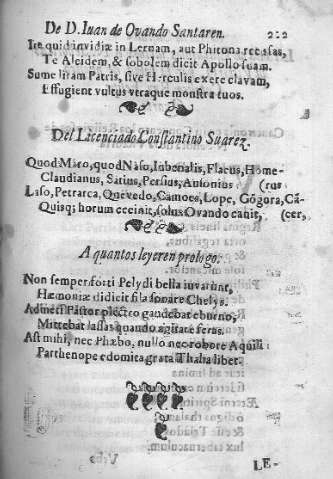 De D. Iuan de Ovando Santaren.
Ite quid invidiæ in Lernam, aut Phitona recessas,
Te Alcidem, & sobolem dicit Apollo suam.
Sume liram Patris, sive Herculis exere clavam,
Effugient vultus utraque monstra tuos.
Del Licenciado Constantino Suarez.
Quod Maro, quod Naso, Iubenalis, Flacus, Home-
Claudianus, Satius, Persius, Ausonius (rus
Laso, Petrarca, Quevedo, Camoes, Lope, Gōgora, Cā-
Quisq; horum cecinit, solus Ovando canit, (cer,
A quantos leyeren prologo.
Non semper forti Pelydi bella iuvarunt,
Hæmoniæ didicit fila sonare Chelys.
Admeti Pastor plectro gaudebat eburno,
Mittebat lassas quando agitare feras.
Ast mihi, nec Phæbo, nullo nec robore Aquili
Parthenope edomita grata Thalia libet.
LE-